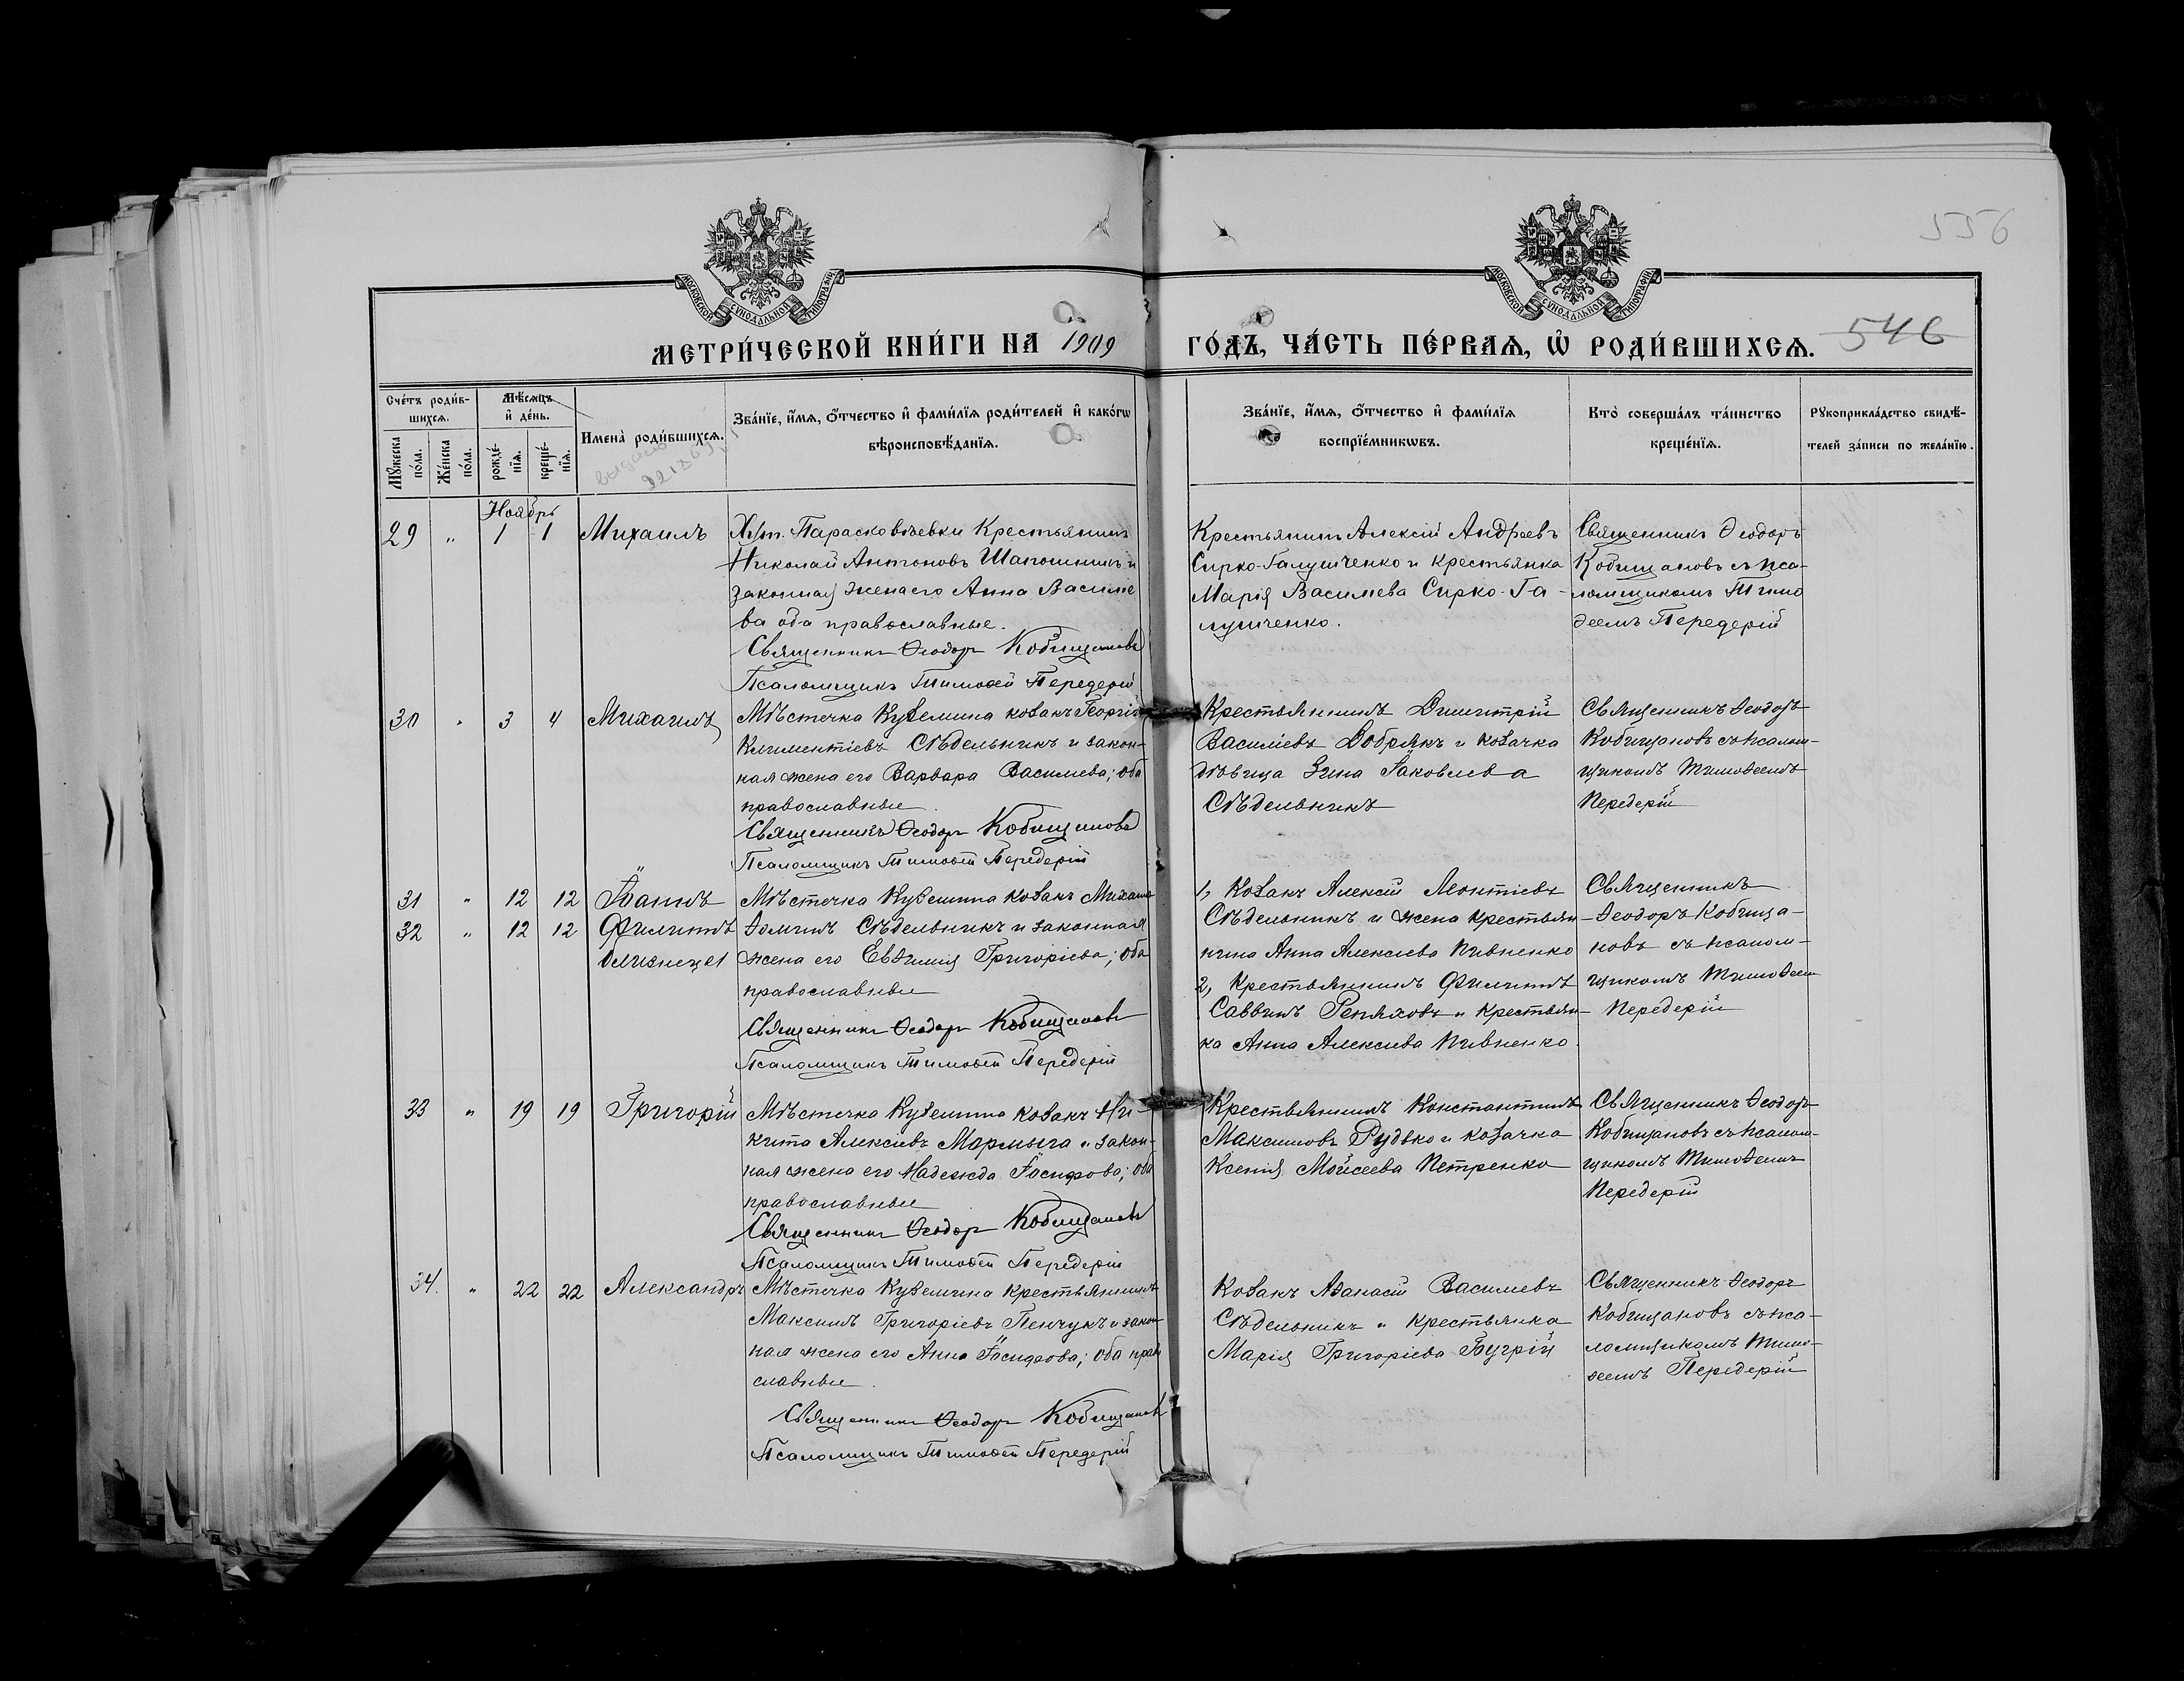 556
МОСКОВСКОЙ СѴНОДАЛЬНОЙ ТИПОГРАФІИ
МОСКОВСКОЙ СѴНОДАЛЬНОЙ ТИПОГРАФІИ
МЕТРИ́ЧЕСКОЙ КНИ́ГИ НА 1909 ГО́ДЪ, ЧА́СТЬ ПЕ́РВАѦ, Ѡ҆ РОДИ́ВШИХСѦ. 546
Сче́тъ роди́в-
шихсѧ.
Мꙋ́жеска по́ла.
Же́нска по́ла.
Мѣ́сѧцъ
и҆ де́нь.
рожде́-
нїѧ.
креще́-
нїѧ.
И҆мена̀ роди́вшихсѧ.
Зва́нїе, и҆́мѧ, ѻ҆́тчество и҆ фами́лїѧ роди́телей и҆ како́гѡ
вѣроисповѣ́данїѧ.
Зва́нїе, и҆́мѧ, ѻ҆́тчество и҆ фами́лїѧ
воспрїе́мникѡвъ.
Кто̀ соверша́лъ та́инство
креще́нїѧ.
Рꙋкоприкла́дство свидѣ́-
телей за́писи по жела́нїю.
Ноябрь
29 " 1 1 Михаилъ
Хут. Парасковѣевки Крестьянинъ
Николай Антоновъ Шапошникъ и
законная жена его Анна Василіе
ва оба православные.
Священникъ Ѳеодоръ Кобищановъ
Псаломщикъ Тимоѳей Передерій
Крестьянинъ Алексій Андреевъ
Сирко-Галушченко и крестьянка
Марія Василіева Сирко-Га-
лушченко.
Священникъ Ѳеодоръ
Кобищановъ съ пса-
ломщикомъ Тимо
ѳеемъ Передерій
30 " 3 4 Михаилъ
Мѣстечка Куземина козакъ Георгій
Климентіевъ Сѣдельникъ и закон-
ная жена его Варвара Василіева; оба
православные
Священникъ Ѳеодоръ Кобищановъ
Псаломщикъ Тимоѳей Передерій
Крестьянинъ Димитрій
Василіевъ Добрякъ и козачка
дѣвица Зина Іаковлева
Сѣдельникъ
Священникъ Ѳеодоръ
Кобищановъ съ псалом-
щикомъ Тимоѳеемъ
Передерій
31 " 12 12 Іоаннъ
32 " 12 12 Филиппъ
близнецы
Мѣстечка Куземина козакъ Михаилъ
Ѳоминъ Сѣдельникъ и законная
жена его Евѳимія Григоріева; оба
православные
Священникъ Ѳеодоръ Кобищановъ
Псаломщикъ Тимоѳей Передерій
1, Козакъ Алексій Леонтіевъ
Сѣдельникъ и жена крестьян-
нина Анна Алексіева Пивненко
2, Крестьянинъ Филиппъ
Саввинъ Репяховъ и крестьян-
ка Анна Алексіева Пивненко.
Священникъ
Ѳеодоръ Кобища-
новъ съ псалом-
щикомъ Тимоѳеем
Передерій
33 " 19 19 Григорій
Мѣстечка Куземина козакъ Ни-
кита Алексіевъ Мормыга и закон-
ная жена его Надежда Іосифова; оба
православные
Священникъ Ѳеодоръ Кобищановъ
Псаломщикъ Тимоѳей Передерій
Крестьянинъ Константинъ
Максимовъ Рудько и козачка
Ксенія Моисеева Петренко
Священникъ Ѳеодоръ
Кобищановъ съ псалом-
щикомъ Тимоѳеемъ
Передерій
34. " 22 22 Александръ
Мѣстечка Куземина крестьянинъ
Максимъ Григоріевъ Пенчукъ и закон-
ная жена его Анна Іосифова; оба прав
славные.
Священникъ Ѳеодоръ Кобищановъ
Псаломщикъ Тимоѳей Передерій
Козакъ Аѳанасій Василіевъ
Сѣдельникъ и крестьянка
Марія Григоріева Бугрій
Священникъ Ѳеодоръ
Кобищановъ съ пса-
ломщикомъ Тимо-
ѳеемъ Передерій